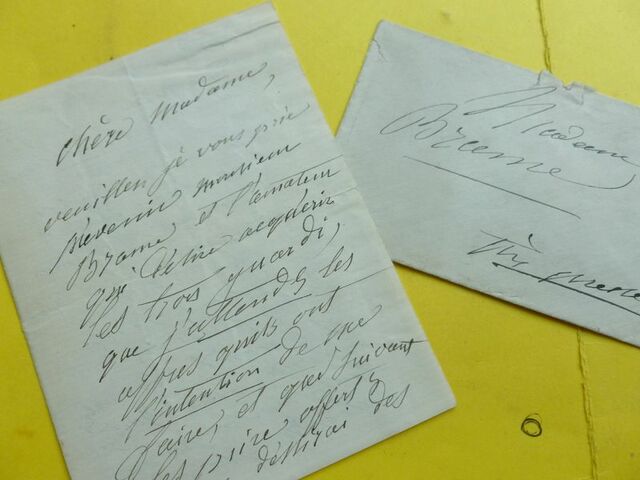 chère Madame,
veuillez je vous prie
prévenir monsieur
Brame, et l'amateur
qui désire acquérir
les trois guardi,
que j'attends les
offres qu'ils ont
l'intention de me
faire, et que suivant
les prix offerts
des
Madame
Brame